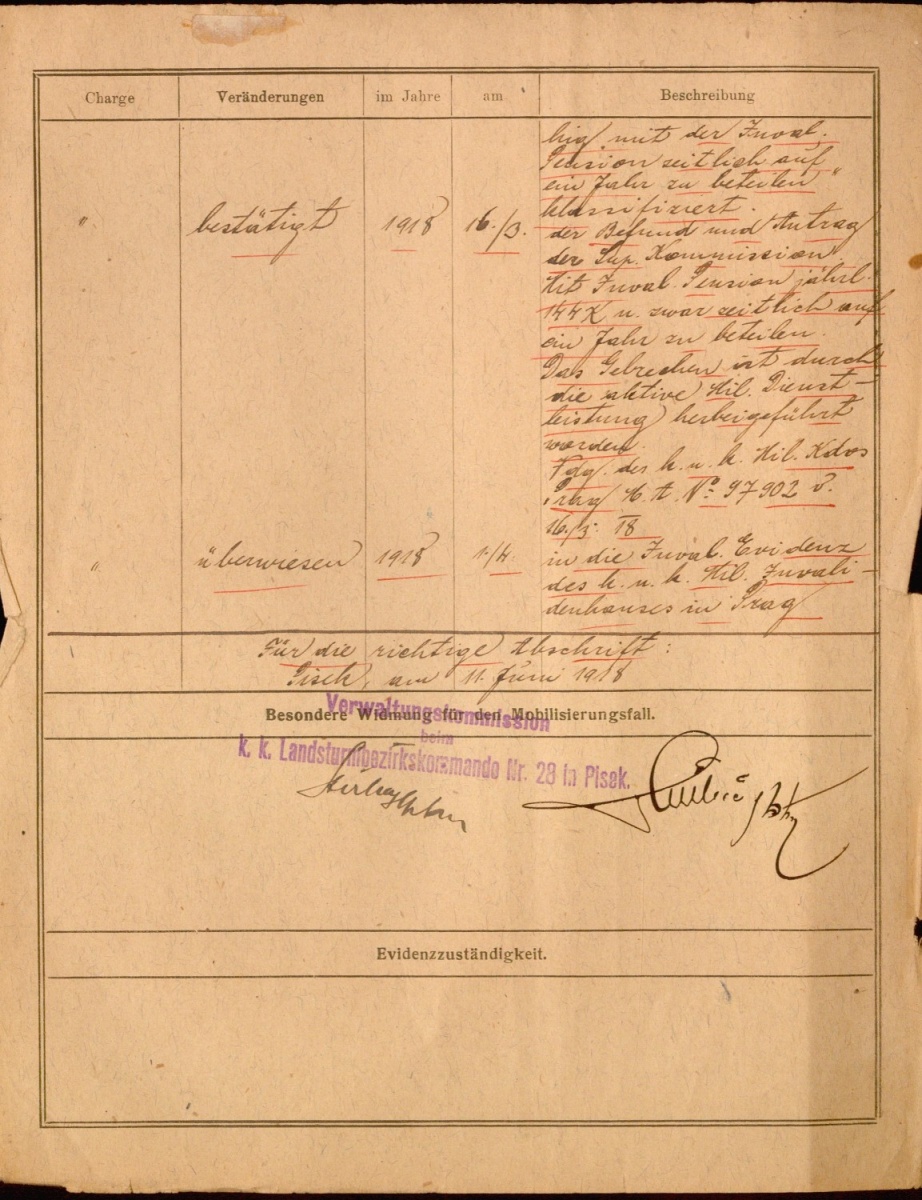 Charge Veränderungen im Jahre am Beschreibung
hig mit der Inval.
Pension zeitlich auf
ein Jahr zu beteilen"
klassifiziert.
" bestätigt 1918 16./3. der Befund und Antrag
der Sup. Kommission.
Mit Inval. Pension jährl.
144 K u. zwar zeitlich auf
ein Jahr zu beteilen.
Das Gebrechen ist durch
die aktive Mil. Dienst-
leistung herbeigeführt
worden.
Vdg. des k. u. k. Mil. Kdos
Prag M. A. No 97902 v.
16./3. 18
" überwiesen 1918 1./4. in die Inval. Evidenz
des k. u. k. Mil. Invali-
denhauses in Prag
Für die richtige Abschrift:
Pisek, am 11. Juni 1918
Besondere Widmung für den Mobilisierungsfall.
Verwaltungskommission
beim
k. k. Landsturmbezirkskommando Nr. 28 in Pisek.
Evidenzzuständigkeit.